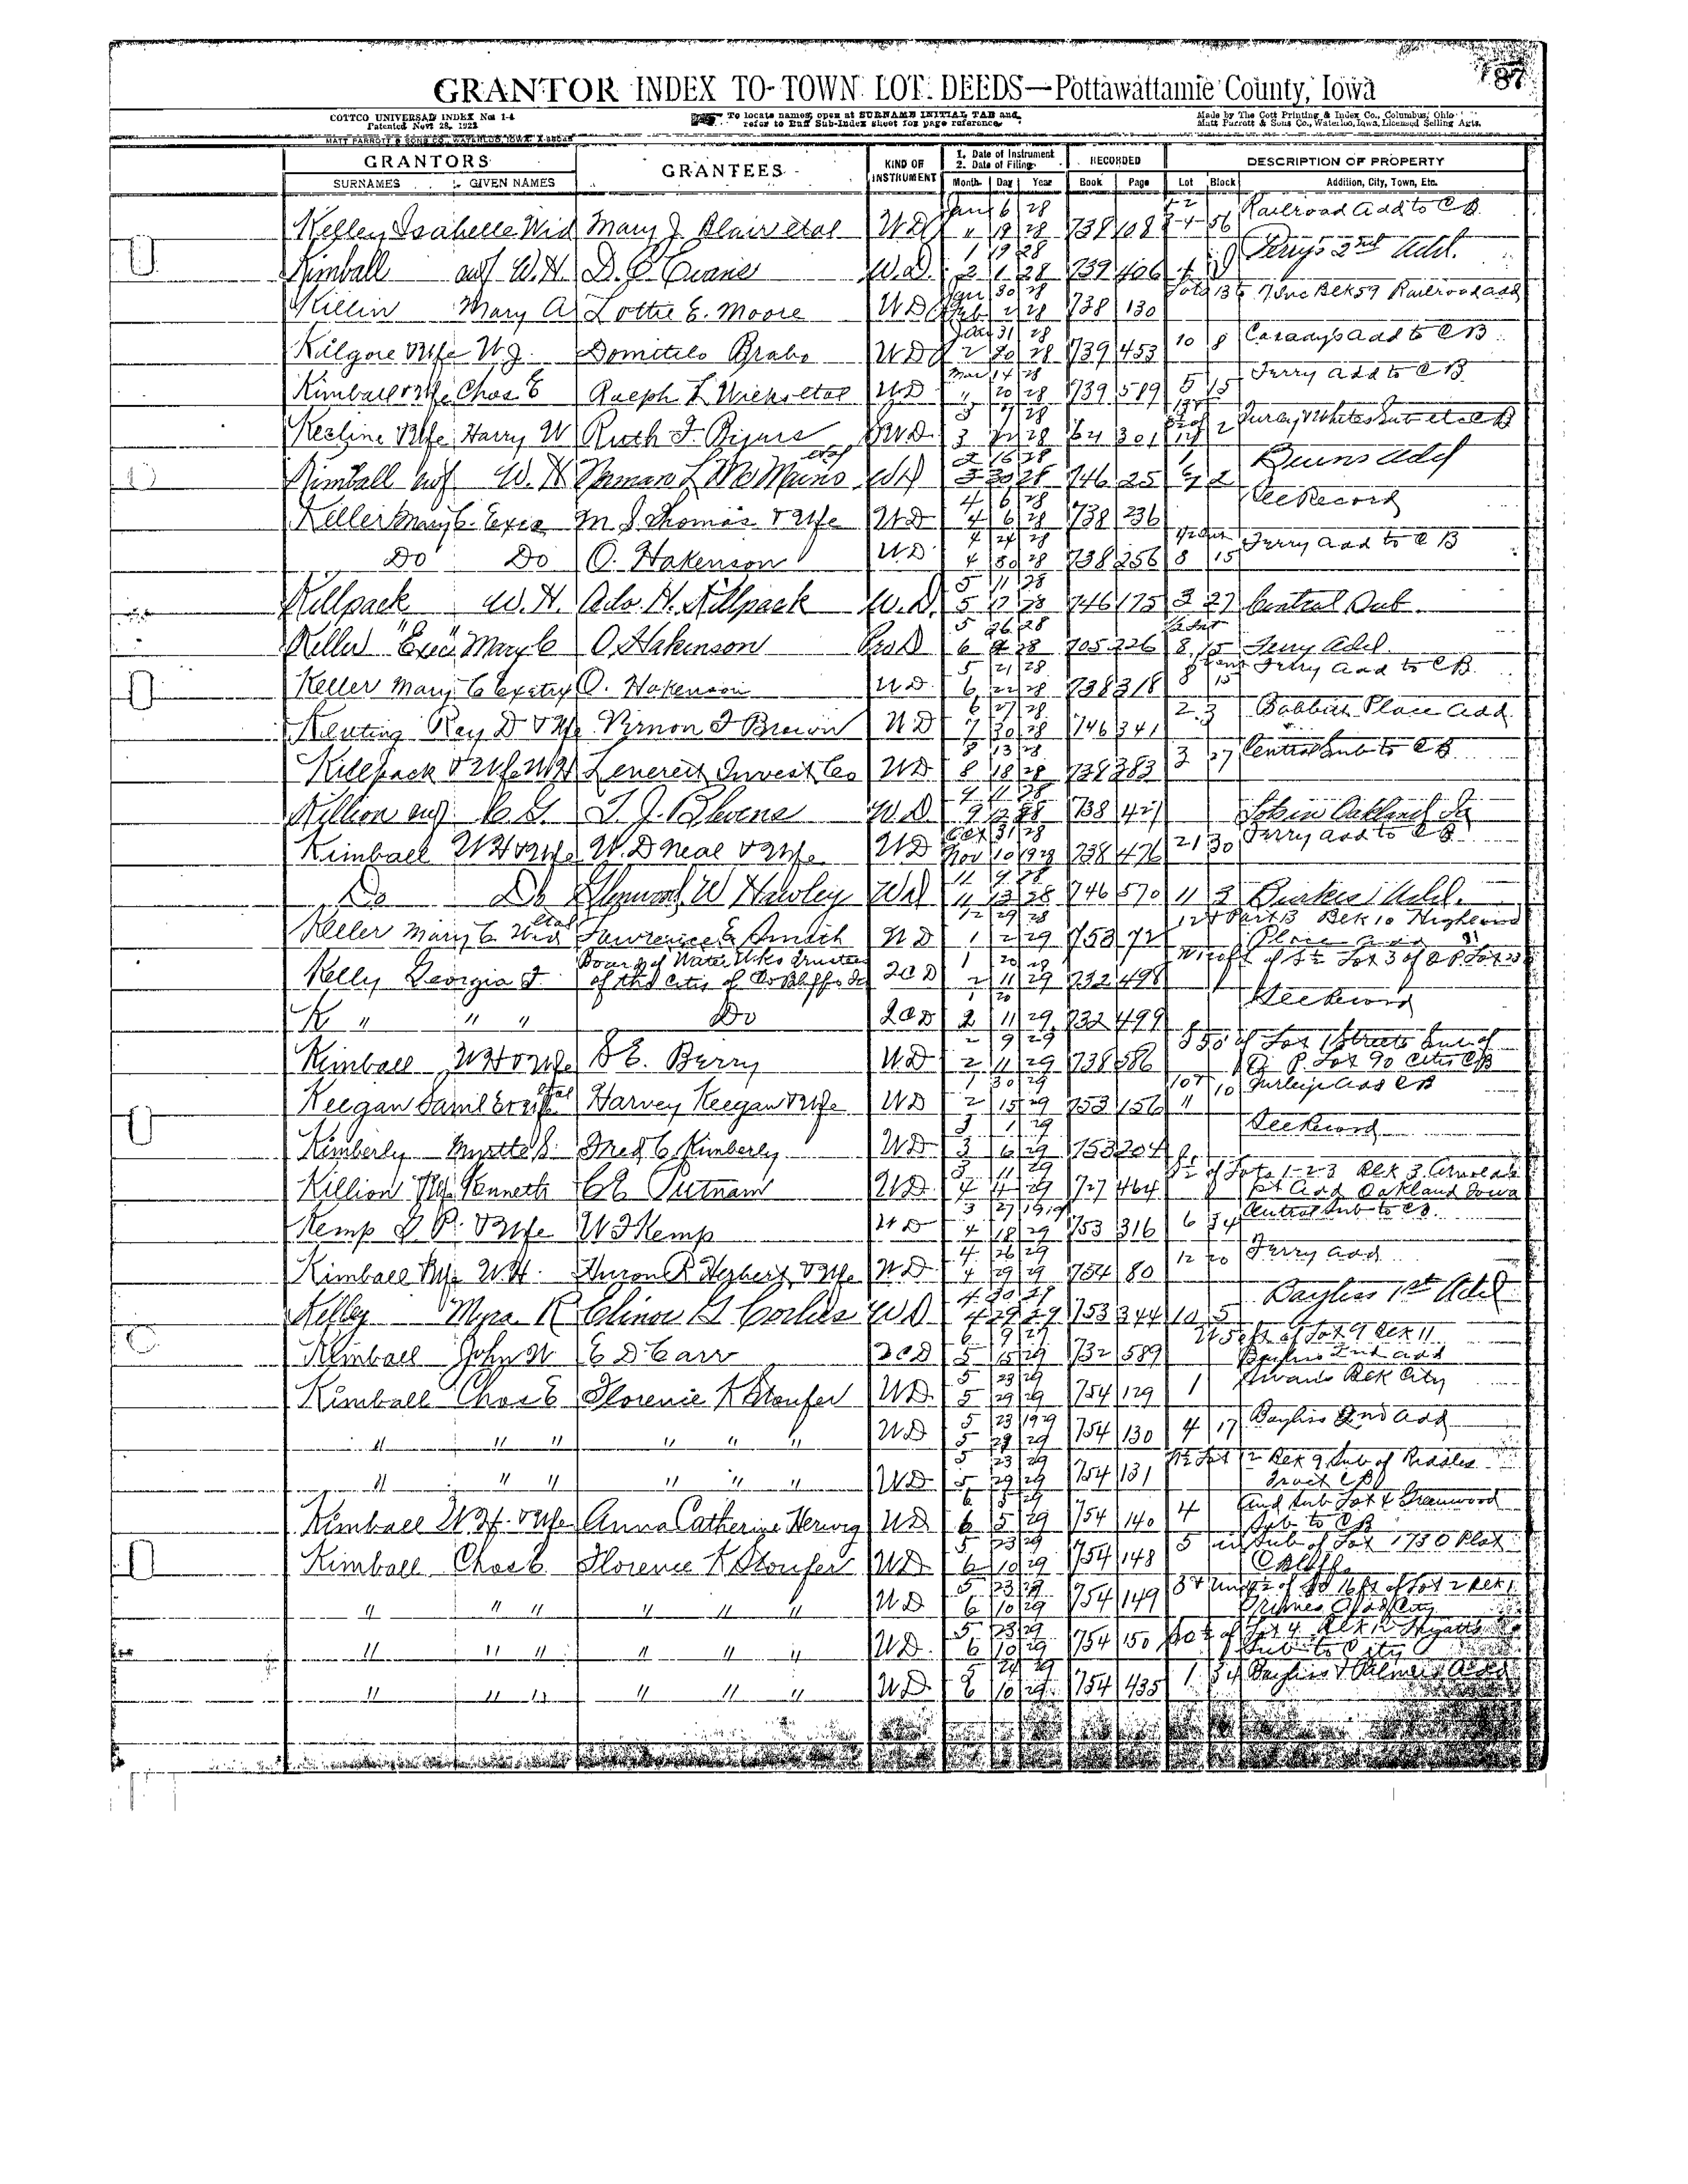 87
GRANTOR INDEX TO TOWN LOT DEEDS—Pottawattamie County, Iowa
COTTCO UNIVERSAL INDEX No. 1-4
Patented Nov. 28, 1922
To locate names, open at SURNAME INITIAL TAB and
refer to Buff Sub-Index sheet for page reference
Made by The Cott Printing & Index Co., Columbus, Ohio
Matt Parrott & Sons Co., Waterloo, Iowa, Licensed Selling Agts.
MATT PARROTT & SONS CO., WATERLOO, IOWA
GRANTORS GRANTEES KIND OF INSTRUMENT 1. Date of Instrument 2. Date of Filing RECORDED DESCRIPTION OF PROPERTY
SURNAMES GIVEN NAMES Month Day Year Book Page Lot Block Addition, City, Town, Etc.
Jany 6 28 Railroad Add to C B
Kelley Isabelle Wid Mary J. Blair etal WD " 19 28 738 108 3-4- 56
1 19 28 Perry's 2nd Add.
Kimball awf W.H. D. C. Evans W.D. 2 1 28 739 406
Jan 30 28 Lots 13 to 7 Inc Blk 59 Railroad add
Killin Mary A Lottie E. Moore WD Feb 2 28 738 130
Jan 31 28 10 8 Casady's add to C B
Kilgore & Wife W.J. Domitilo Brabo WD 2 20 28 739 453
Mar 14 28 Ferry add to C B
Kimball & Wife Chas E Ralph L Wicks etal WD " 20 28 739 589 5 15
Keeline & Wife Harry W Ruth F. Bijurs WD 3 22 28 64 301 2
2 16 28 1 Beers Add
Kimball awf W. H Norman L McMains etal WD 3 30 28 746 25 2
4 6 28 See Record
Keller Mary C. Exex M S Thomas & Wife WD 4 6 28 738 236
4 24 28 Ferry add to C B
Do Do O. Hakenson WD 4 30 28 738 256 8 15
5 11 28
Killpack W. H. Ada H. Killpack W.D. 5 17 28 746 175 3 27 Central Sub.
5 26 28
Keller "Exec" Mary C O. Hakinson 6 4 28 705 226 8 15 Ferry Add.
5 21 28 Ferry add to C B.
Keller Mary C Exetrx O. Hakenson WD 6 22 28 738 318 8 15
6 27 28 2 3 Babbitt Place add.
Keating Ray D & Wife Vernon F Brown WD 7 30 28 746 341
8 13 28 3 27 Central Sub to C B
Killpack & Wife WH Leverett Invest Co WD 8 18 28 738 383
Killion awf C G. T. J. Blevens W.D. 738 421 Oakland Ia
Oct 31 28 21 30 Ferry add to C B
Kimball WH & Wife W. D Neal & Wife WD Nov 10 1928 738 476
11 9 28
Do Do Glenwood W Hawley WD 11 13 28 746 570 11 3 Burkes Add.
12 29 28 12 & Part 13 Blk 10 Highland
Keller Mary C Wid etal Lawrence E Smith WD 1 2 29 753 72 Place add
Board of Water Wks Trustees 1 20 28
Kelly Georgia F. of the City of Co Bluffs Ia QCD 2 11 29 732 498
1 20 See Record
K " " " Do QCD 2 11 29 732 499
2 9 29 S 50 of Lot 1 Streets Sub of
Kimball WH & Wife S E. Berry WD 2 11 29 738 586 P. Lot 90 City C B
1 30 29 10 & 10 Turleys add C B
Keegan Saml E etal Harvey Keegan & Wife WD 2 15 29 753 156 11
3 1 29 See Record
Kimberly Myrtle S. Fred C. Kimberly WD 3 6 29 753 204
3 11 29 of Lots 1-2-3 Blk 3
Killion & Wife Kenneth C E Putnam WD 4 4 29 727 464 1st Add Oakland Iowa
3 27 1919 Central Sub to C B.
Kemp I P. & Wife W F Kemp WD 4 18 29 753 316 6 34
4 26 29 12 20 Ferry add
Kimball & Wife W.H. Huron R Herbert & Wife WD 4 29 29 754 80
4 20 29 Bayliss 1st Add
Kelley Myra R Elinor G Corliss WD 4 29 29 753 344 10 5
6 9 27 of Lot 9 Blk 11
Kimball John W E D Carr QCD 5 15 29 732 589 Bayliss 2nd add
5 23 29 Blk City
Kimball Chas E Florence K Stoufer WD 5 29 29 754 129 1
5 23 1929 Bayliss 2nd Add
" " " " " " WD 5 29 29 754 130 4 17
5 23 29 12 Blk 9 Sub of Riddles
" " " " " " WD 5 29 29 754 131 Tract C B
6 3 29 Aud Sub Lot 4 Greenwood
Kimball W H. & Wife Anna Catherine Herwig WD 6 5 29 754 140 4 Sub to C B
5 23 29 5 in Sub of Lot 173 O Plat
Kimball Chas E Florence K Stoufer WD 6 10 29 754 148 C Bluffs
5 23 29 of Lot 2 Blk 1
" " " " " " WD 6 10 29 754 149 Grimes Add City
5 23 29 of Lot 4 Blk 12 Hyatts
" " " " " " WD. 6 10 29 754 150 Sub to City
5 24 29 1 34 Bayliss & Palmers Add
" " " " " " WD 8 10 29 754 435